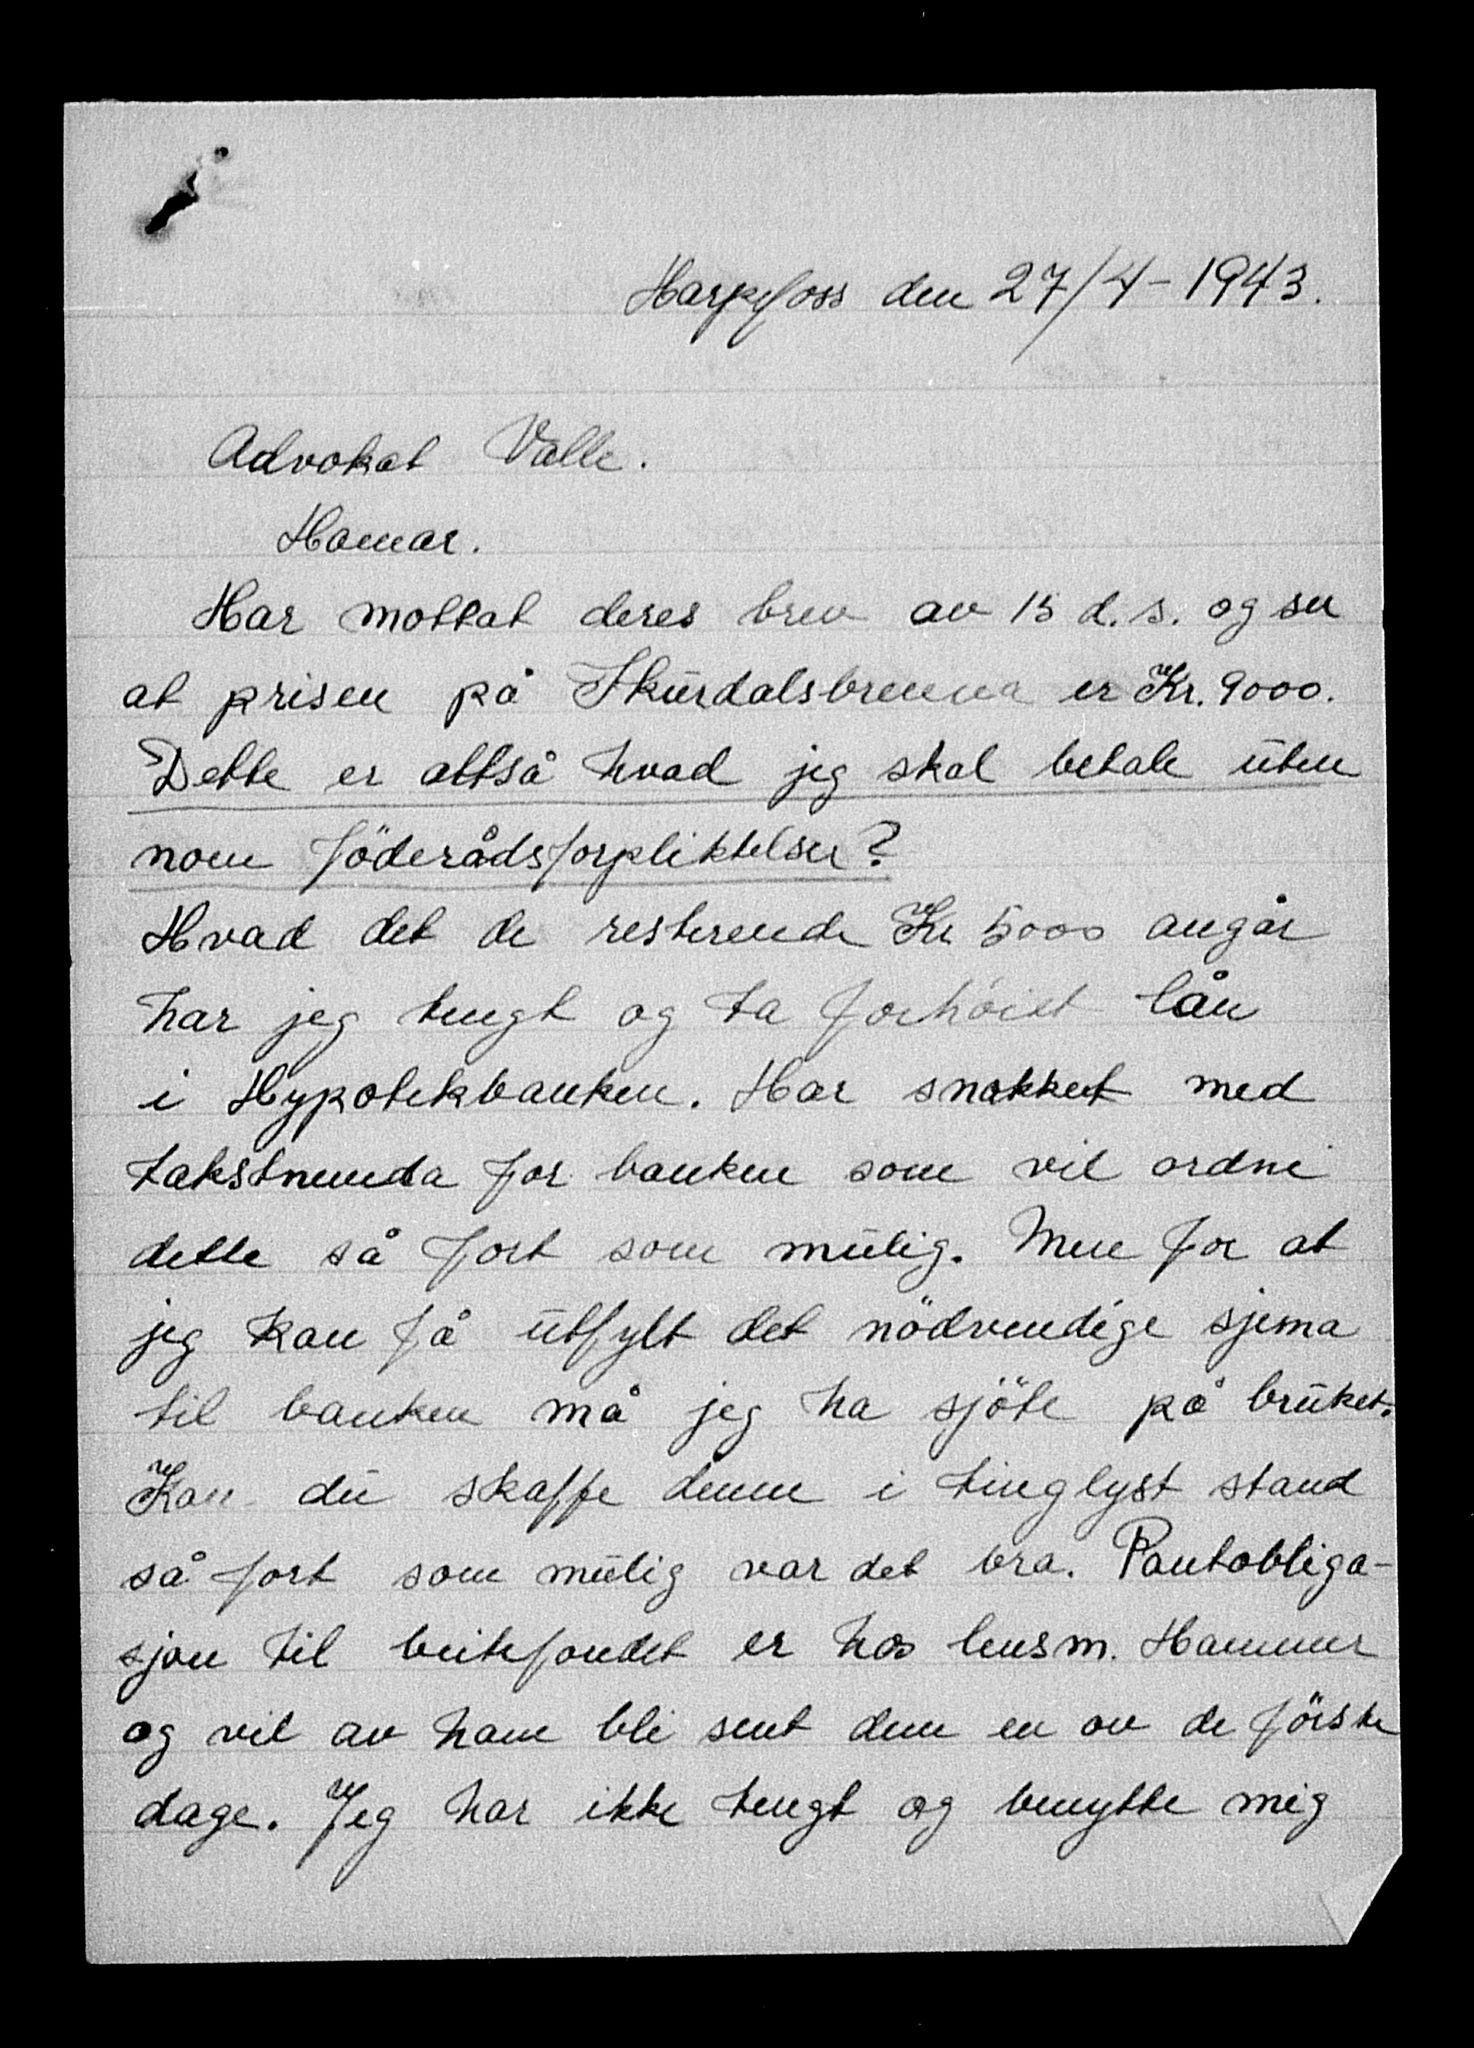 Harpefoss den 27/4-1943.
Advokat Valle.
Hamar.
Har mottat deres brev av 15 d.s. og ser
at prisen på Skurdalsbrenna er Kr. 9000.
Dette er altså hvad jeg skal betale uten
nom föderådsforpliktelser?
Hvad det de resterende Kr 5000 angår
har jeg tengt og ta forhöiet lån
i Hypotekbanken. Har snakket med
takstnemda for banken som vil ordne
dette så fort som mulig. Men for at
jeg kan få utfylt det nödvendige sjema
til banken må jeg ha sjöte på bruket.
Kan du skaffe denne i tinglyst stand
så fort som mulig var det bra. Pantobliga-
sjon til butefondet er hos lensm. Hammer
og vil av ham bli sent dem en av de förste
dage. Jeg har ikke tengt og benytte mig